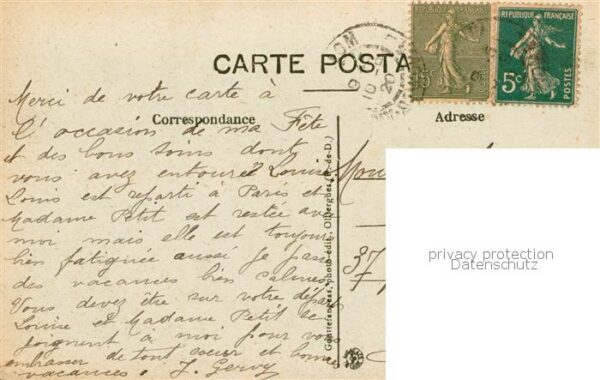 CARTE POSTA
RÉPUBLIQUE FRANÇAISE
15c
RÉPUBLIQUE FRANÇAISE
5c
POSTES
Correspondance
Adresse
Merci de votre carte à
l'occasion de ma Fête
et des bons soins dont
vous avez entourée Louise
Louis est reparti à Paris et
Madame Petit est restée avec
moi mais elle est toujours
bien fatiguée aussi je passe
des vacances bien calmes
Vous devez être sur votre départ
Louise et Madame Petit se
joignent à moi pour vous
embrasser de tout coeur et bonnes
vacances. J. Gervy
Gouttefangeas, photo-édit., Olliergues (P.-de-D.)
37
privacy protection
Datenschutz